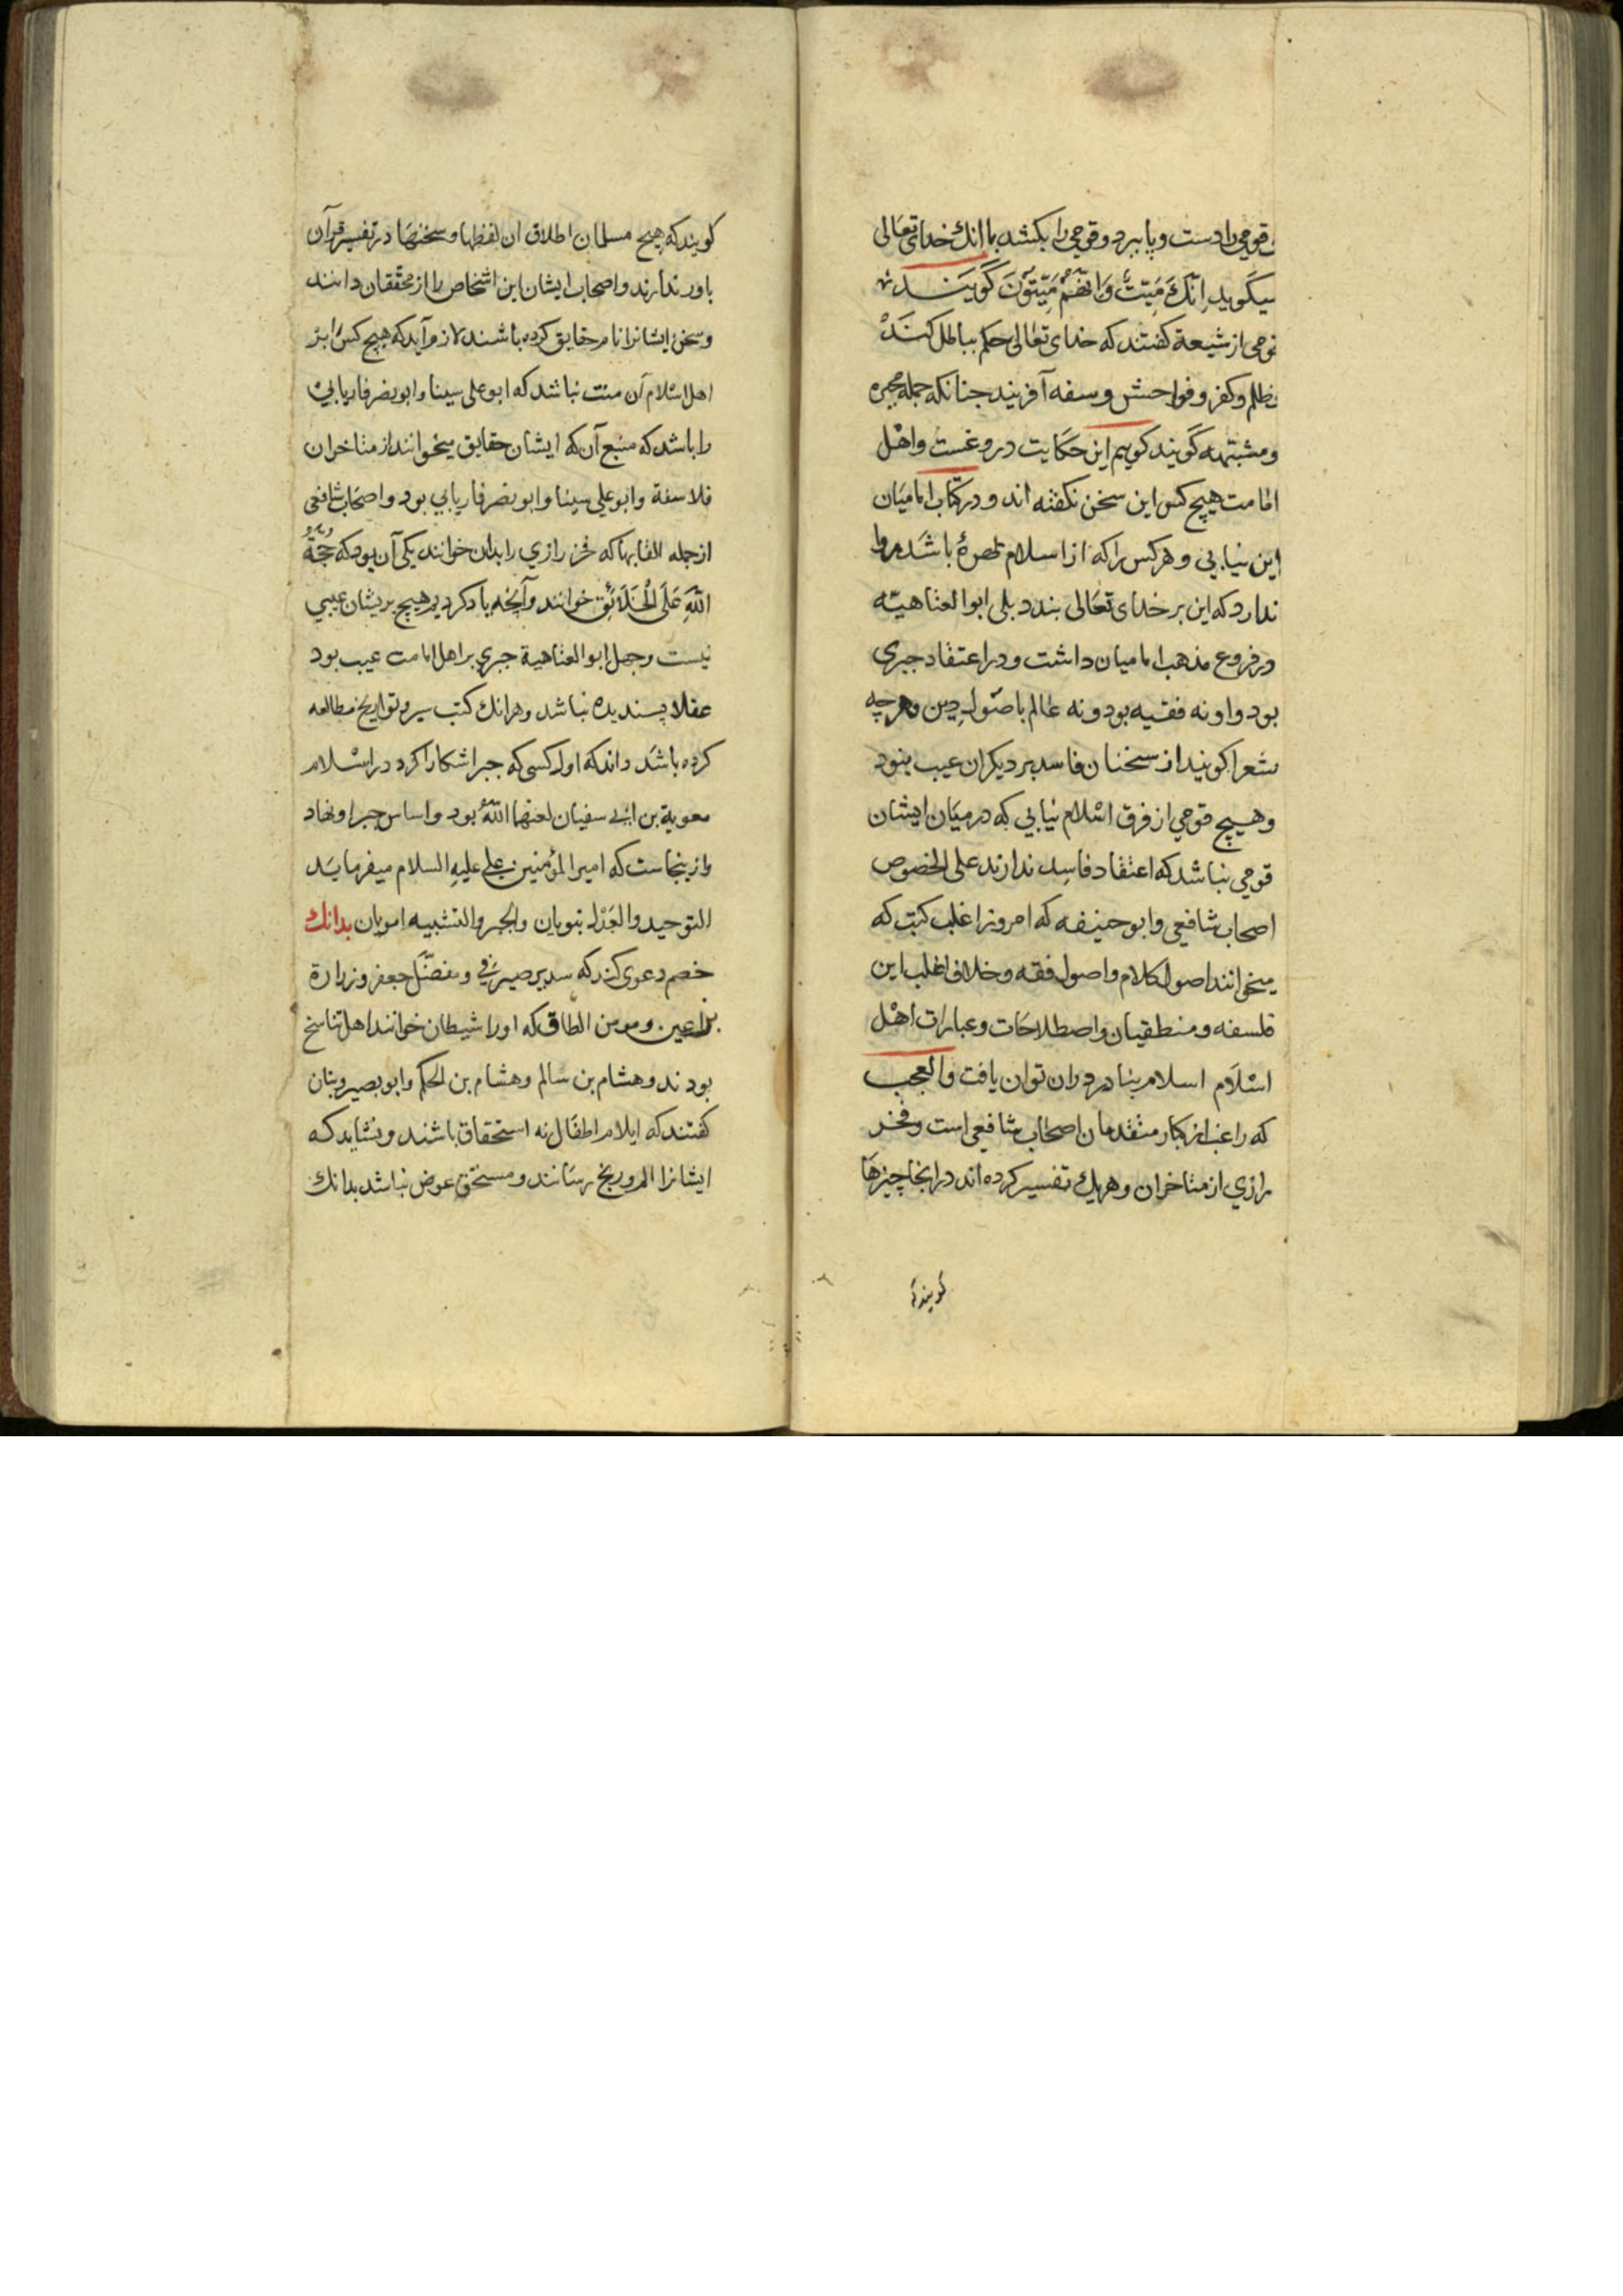 قومی را دست و پا ببرد و قومی را بکشد با انك خدای تعالی
میکوید اِنَّكَ مَیِّتٌ وَ اِنَّهُمْ مَیِّتُونَ کویند
قومی از شیعة کفتند که خدای تعالی حکم بباطل کند
و ظلم و کفر و فواحش و سفه آفریند جنانکه جمله مجبره
و مشبهه کویند کوییم این حکایت دروغست و اهل
امامت هیچ کس این سخن نکفته اند و در کتاب امامیان
این نیابی و هر کس را که از اسلام بهرهٔ باشد روا
ندارد که این بر خدای تعالی بندد بلی ابو العتاهیه
در فروع مذهب امامیان داشت و در اعتقاد جبری
بود و او نه فقیه بود و نه عالم باصول دین و هر چه
شعرا کویند از سخنان فاسد بر دیکران عیب نبود
و هیچ قومی از فرق اسلام نیابی که در میان ایشان
قومی نباشد که اعتقاد فاسد ندارند علی الخصوص
اصحاب شافعی و ابو حنیفه که امروز اغلب کتب که
میخوانند اصول کلام و اصول فقه و خلاف اغلب این
فلسفه و منطقیان و اصطلاحات و عبارات اهل
اسلام اسلام بنادر در ان توان یافت و العجب
که راغب از کبار متقدمان اصحاب شافعی است و فخر
رازی از متاخران و هر یك تفسیر کرده اند در انجا چیزها
کویند که
کویند که هیچ مسلمان اطلاق ان لفظها و سخنها در تفسیر قرآن
باور ندارند و اصحاب ایشان این اشخاص را از محققان دانند
و سخن ایشانرا نام حقایق کرده باشند لازم آید که هیچ کس را بر
اهل اسلام آن منت نباشد که ابو علی سینا و ابو نصر فاریابی
را باشد که منبع آن که ایشان حقایق میخوانند از متاخران
فلاسفة و ابو علی سینا و ابو نصر فاریابی بود و اصحاب شافعی
از جمله القابها که فخر رازی را بدان خوانند یکی آن بود که حُجَّةُ
اللّٰهِ عَلَی الْخَلَائِقِ خوانند و آنچه یاد کردیم هیچ بریشان عیبی
نیست و جهل ابو العتاهیة جبری بر اهل امامت عیب بود
عقلا پسندیده نباشد و هر انك کتب سیر و تواریخ مطالعه
کرده باشد داند که اول کسی که جبر اشکارا کرد در اسلام
معویة بن ابی سفیان لعنهما اللّٰه بود و اساس جبر او نهاد
و ازینجاست که امیر المؤمنین علی علیه السلام میفرماید
التوحید و العدل نبویان و الجبر و التشبیه امویان بدانك
خصم دعوی کند که سدیر صیرفی و مفضل جعفر و زرارة
بن اعین و مومن الطاق که او را شیطان خوانند اهل تناسخ
بودند و هشام بن سالم و هشام بن الحکم و ابو بصیر و بنان
کفتند که ایلام اطفال نه استحقاق باشند و نشاید که
ایشانرا الم و رنج رسانند و مستحق عوض نباشد بدانك